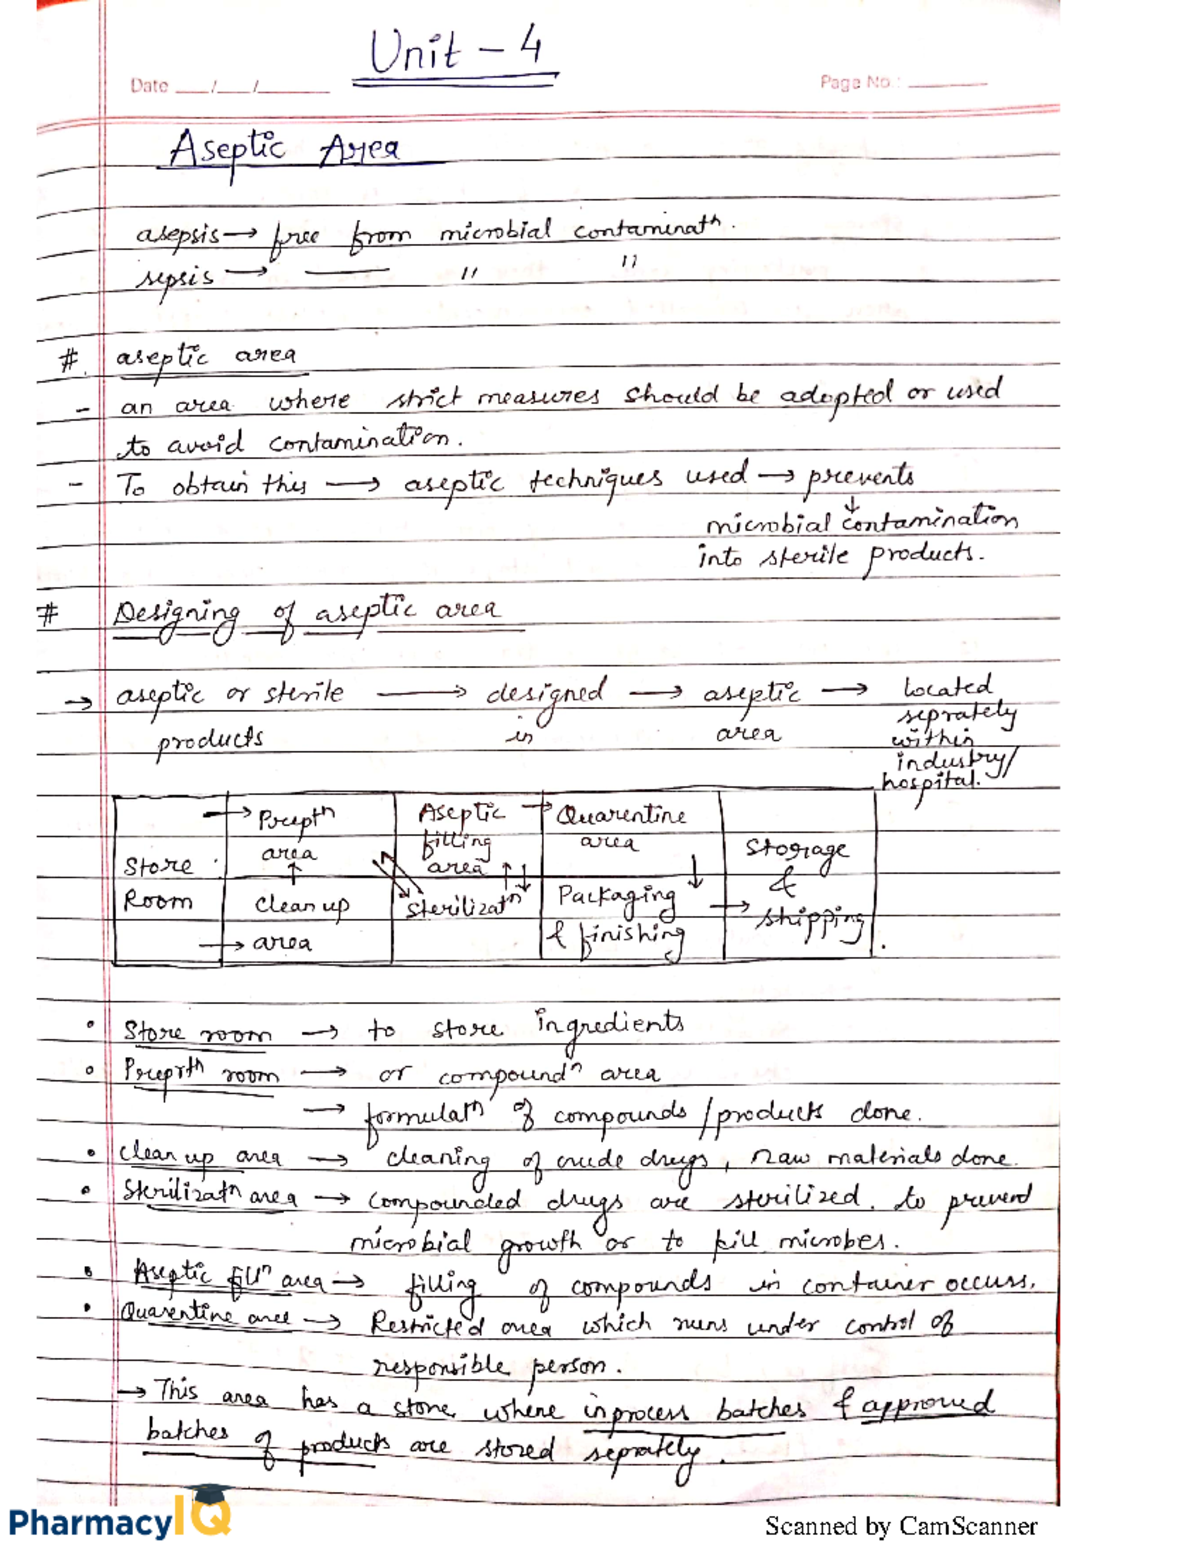 Unit - 4
Date ___/___/______ Page No.: ______
Aseptic Area
asepsis → free from microbial contaminatn.
sepsis → —— " "
# aseptic area
- an area where strict measures should be adopted or used
to avoid contamination.
- To obtain this → aseptic techniques used → prevents
↓
microbial contamination
into sterile products.
# Designing of aseptic area
→ aseptic or sterile → designed → aseptic → located
products in area seprately
within
industry/
hospital.
Store Room
→ Prepth area
↑
→ clean up area
Aseptic filling area ↑↓
Sterilizatn
→ Quarentine area
↓
Packaging & finishing
→ Storage & shipping
• Store room → to store ingredients
• Preprth room → or compoundn area
→ formulatn of compounds/products done.
• Clean up area → cleaning of crude drugs, raw materials done.
• Sterilizatn area → compounded drugs are sterilized. to prevend
microbial growth or to kill microbes.
• Aseptic filln area → filling of compounds in container occurs.
• Quarentine area → Restricted area which runs under control of
responsible person.
→ This area has a store where inprocess batches & approved
batches of products are stored seprately.
PharmacyIQ
Scanned by CamScanner